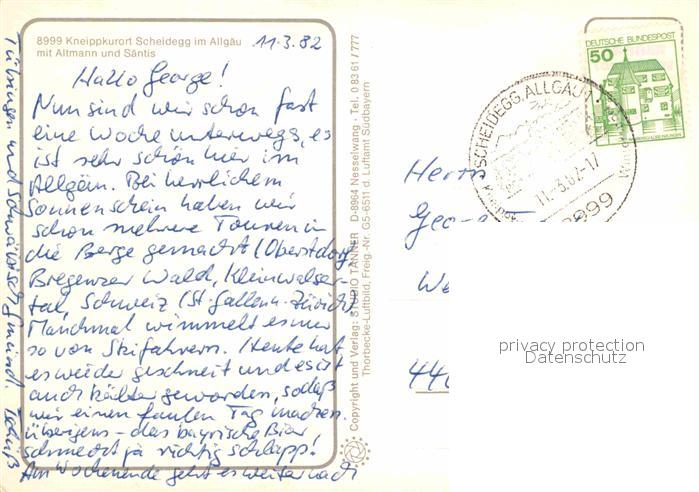 8999 Kneippkurort Scheidegg im Allgäu
mit Altmann und Säntis
11.3.82
Hallo George!
Nun sind wir schon fast
eine Woche unterwegs, es
ist sehr schön hier im
Allgäu. Bei herrlichem
Sonnenschein haben wir
schon mehrere Touren in
die Berge gemacht (Oberstdorf,
Bregenzer Wald, Kleinwalser-
tal, Schweiz (St. Gallen u. Zürich).
Manchmal wimmelt es nur
so von Skifahrern. Heute hat
es wieder geschneit und es ist
auch kälter geworden, sodaß
wir einen faulen Tag machen.
Übrigens - das bayrische Bier
schmeckt ja richtig schlapp!
Am Wochenende geht es weiter nach
Tübingen und Schwäbisch Gmünd. Tschüß
Copyright und Verlag: STUDIO TANNER D-8964 Nesselwang · Tel. 0 83 61 / 777
Thorbecke-Luftbild, Freig.-Nr. G5-6511 d. Luftamt Südbayern
DEUTSCHE BUNDESPOST
50
SCHEIDEGG, ALLGÄU 1
11.-3.82-17
8999
Herrn
Geo
We
44
privacy protection
Datenschutz